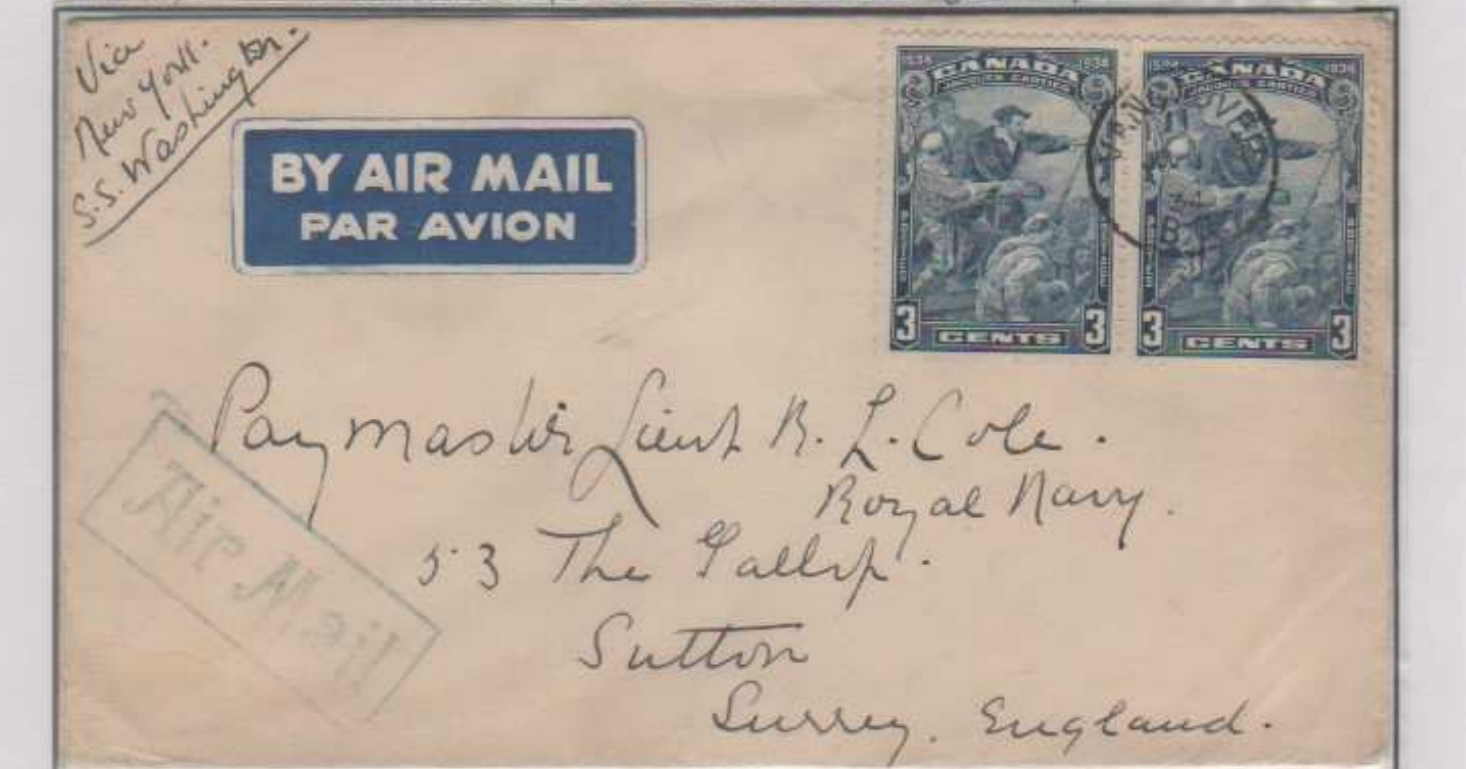 Via
New York.
S.S. Washington.
BY AIR MAIL
PAR AVION
1534 CANADA 1934
JACQUES CARTIER
3 CENTS 3
CANADA 1934
JACQUES CARTIER
3 CENTS 3
VANCOUVER
B
Paymaster Lieut R. L. Cole.
Royal Navy.
53 The Gallop.
Sutton
Surrey. England.
Air Mail